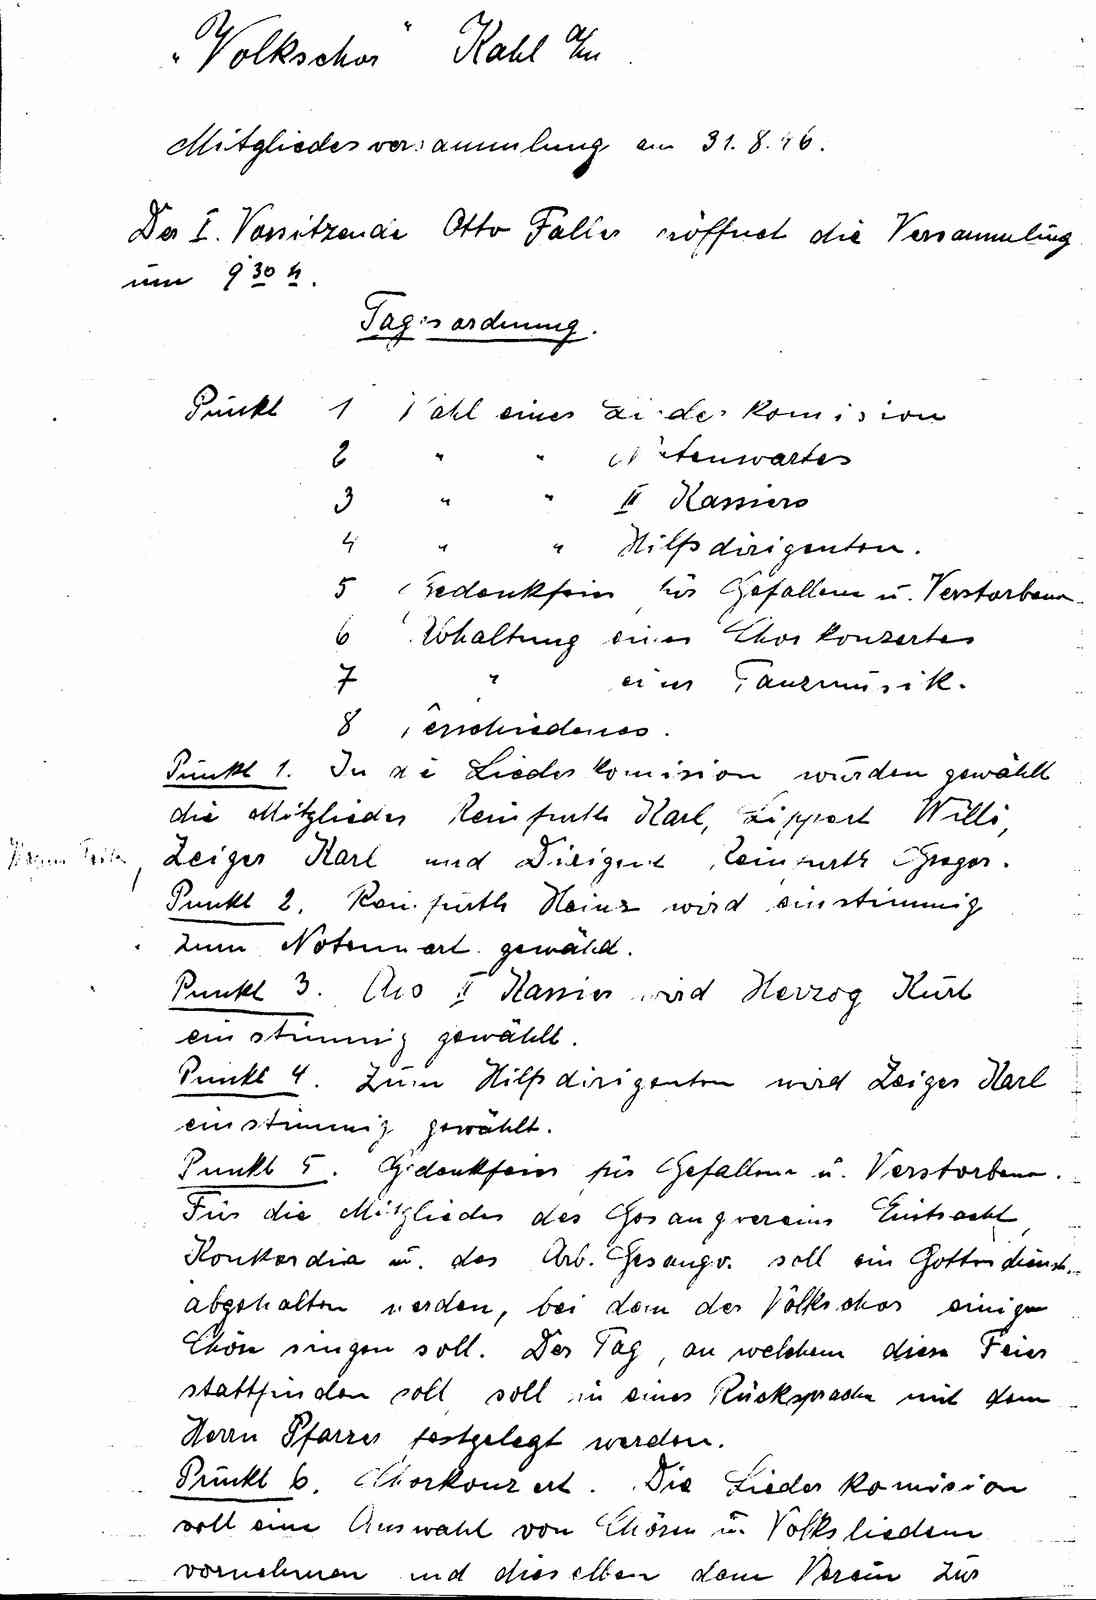 "Volkschor" Kahl a/M
Mitgliederversammlung am 31.8.46.
Der I. Vorsitzende Otto Faller eröffnet die Versammlung
um 9 30 h.
Tagesordnung.
Punkt 1 Wahl einer Liederkomision
2 " " Notenwartes
3 " " II Kassiers
4 " " Hilfsdirigenten.
5 Gedenkfeier für Gefallene u. Verstorbene
6 Abhaltung eines Chorkonzertes
7 " einer Tanzmusik.
8 Verschiedenes.
Punkt 1. In die Liederkomision wurden gewählt
die Mitglieder Reinfurth Karl, Lippert Willi,
Zeiger Karl und Dirigent Reinfurth Gregor.
Punkt 2. Reinfurth Heinz wird einstimmig
zum Notenwart gewählt.
Punkt 3. Als II Kassier wird Herzog Kurt
einstimmig gewählt.
Punkt 4. Zum Hilfsdirigenten wird Zeiger Karl
einstimmig gewählt.
Punkt 5. Gedenkfeier für Gefallene u. Verstorbene.
Für die Mitglieder des Gesangvereins Eintracht,
Konkordia u. des Arb. Gesangv. soll ein Gottesdienst
abgehalten werden, bei dem der Volkschor einige
Chöre singen soll. Der Tag, an welchem diese Feier
stattfinden soll, soll in einer Rücksprache mit dem
Herrn Pfarrer festgelegt werden.
Punkt 6. Chorkonzert. Die Liederkomision
soll eine Auswahl von Chören u. Volksliedern
vornehmen und dieselben dem Verein zur